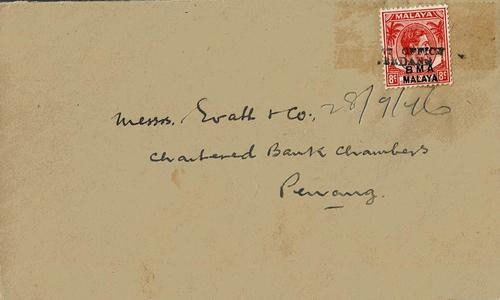 MALAYA
OFFICE
BMA
8c MALAYA 8c
Messrs. Evatt & Co., 28/9/46
Chartered Bank Chambers
Penang.